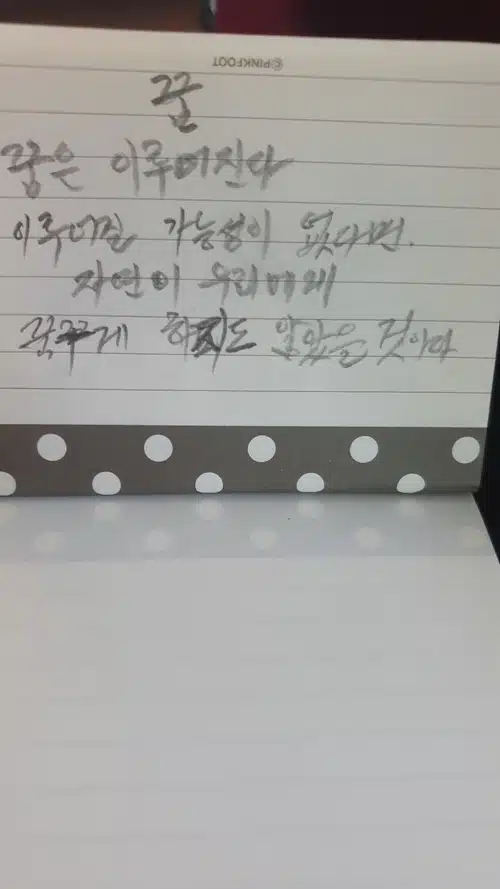 ©PINKFOOT
꿈
꿈은 이루어진다
이루어질 가능성이 없다면.
자연이 우리에게
꿈꾸게 하지도 않았을 것이다